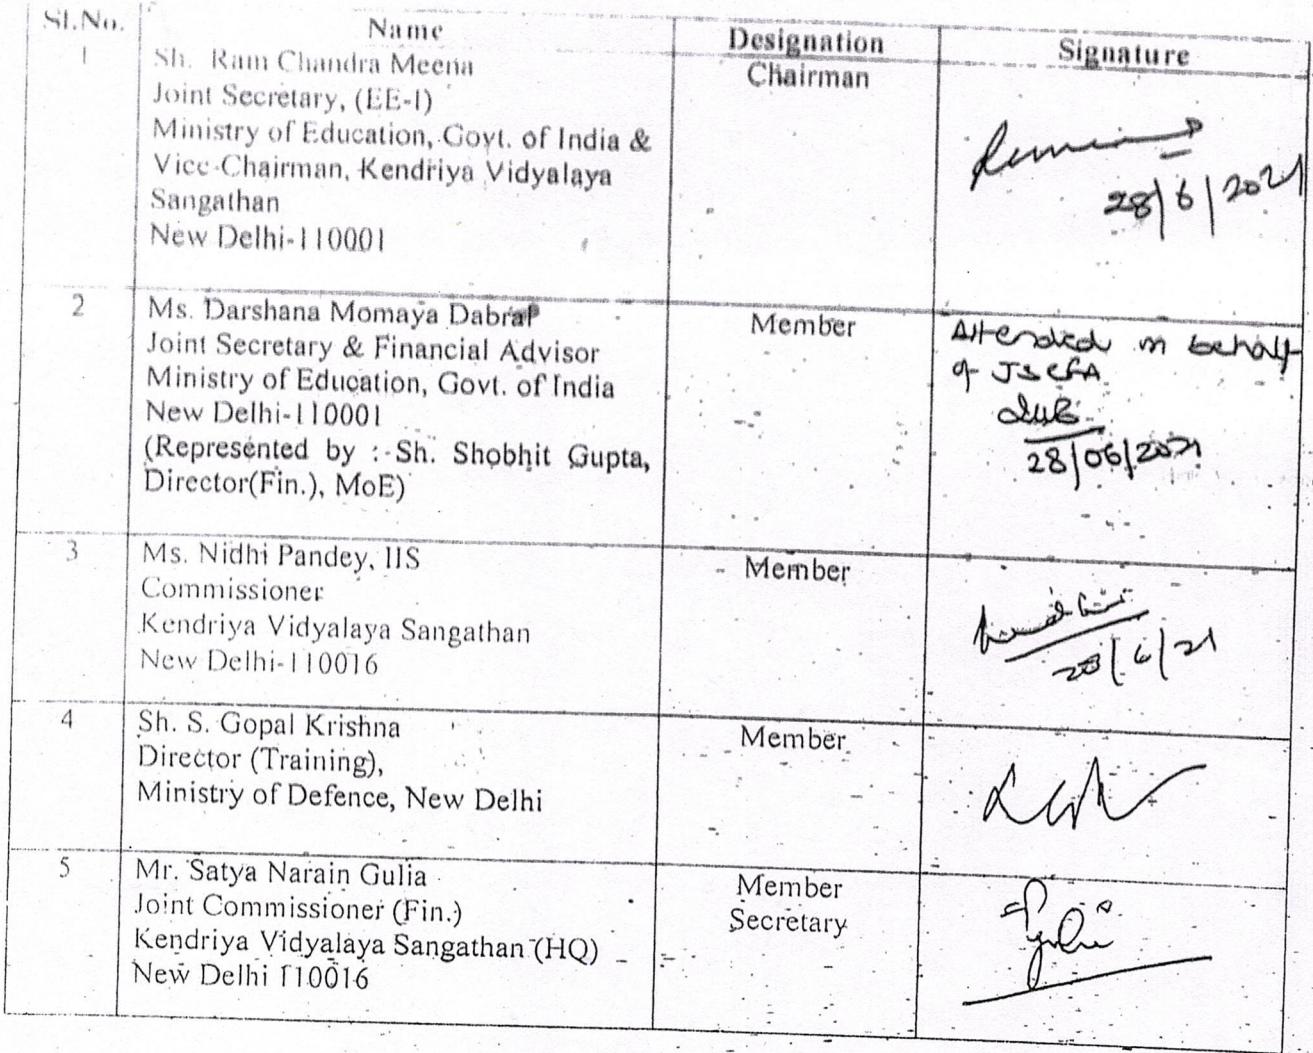 Sl.No. Name Designation Signature
1 Sh. Ram Chandra Meena Chairman
Joint Secretary, (EE-I)
Ministry of Education, Govt. of India &
Vice-Chairman, Kendriya Vidyalaya
Sangathan
New Delhi-110001
28/6/2021
2 Ms. Darshana Momaya Dabral Member
Joint Secretary & Financial Advisor
Ministry of Education, Govt. of India
New Delhi-110001
(Represented by :- Sh. Shobhit Gupta,
Director(Fin.), MoE)
Attended on behalf
of JS&FA
28/06/2021
3 Ms. Nidhi Pandey, IIS Member
Commissioner
Kendriya Vidyalaya Sangathan
New Delhi-110016
28/6/21
4 Sh. S. Gopal Krishna Member
Director (Training),
Ministry of Defence, New Delhi
5 Mr. Satya Narain Gulia Member
Joint Commissioner (Fin.) Secretary
Kendriya Vidyalaya Sangathan (HQ)
New Delhi 110016